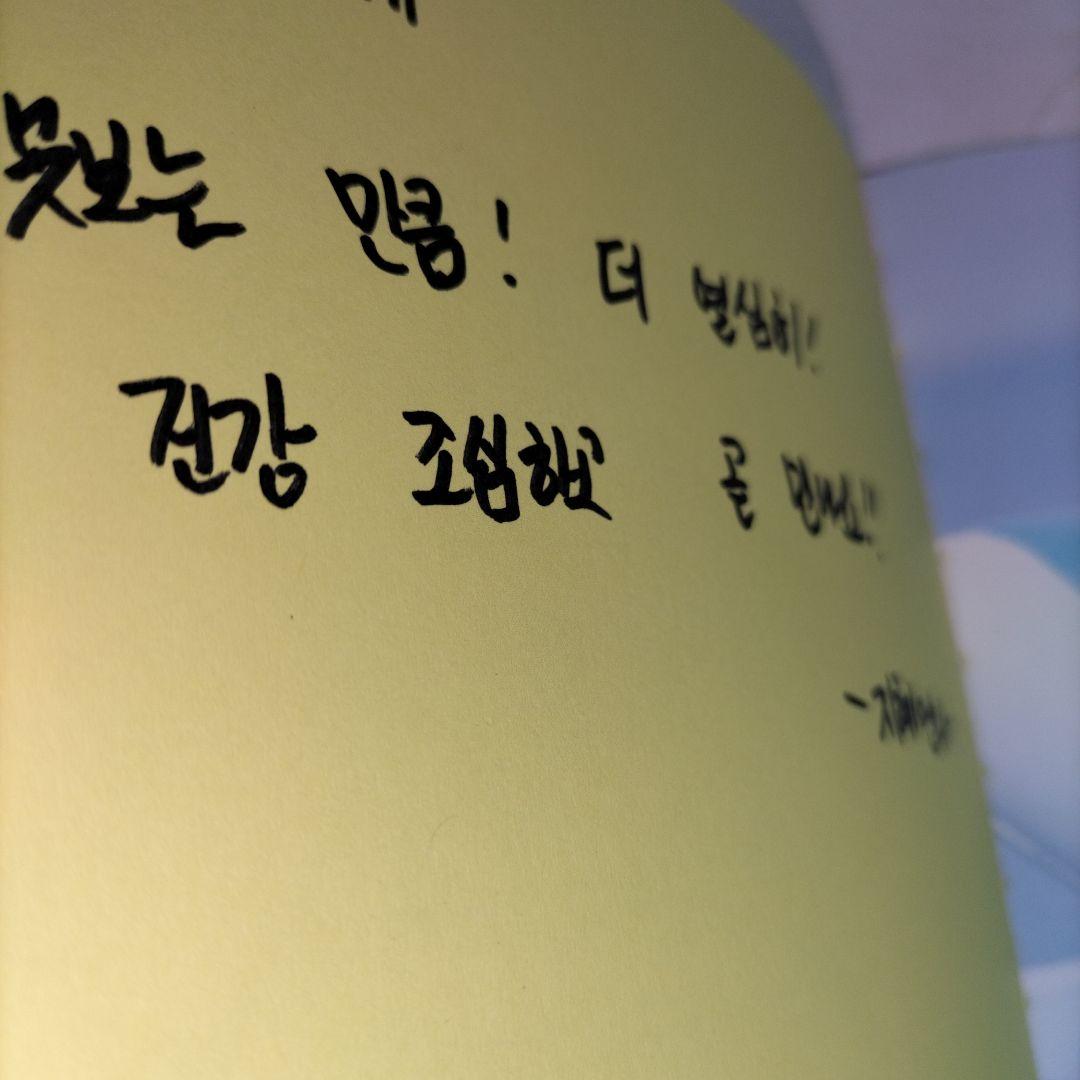 못보는 만큼! 더 열심히!
건강 조심하고 곧 만나요!!